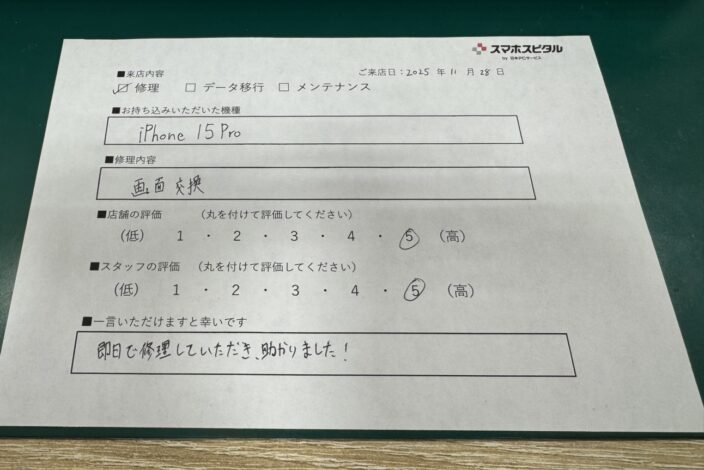 スマホスピタル
by 日本PCサービス
■来店内容
ご来店日：2025 年 11 月 28 日
☑ 修理 □ データ移行 □ メンテナンス
■お持ち込みいただいた機種
iPhone 15 Pro
■修理内容
画面交換
■店舗の評価 （丸を付けて評価してください）
（低） 1 ・ 2 ・ 3 ・ 4 ・ 5 （高）
■スタッフの評価 （丸を付けて評価してください）
（低） 1 ・ 2 ・ 3 ・ 4 ・ 5 （高）
■一言いただけますと幸いです
即日で修理していただき、助かりました！